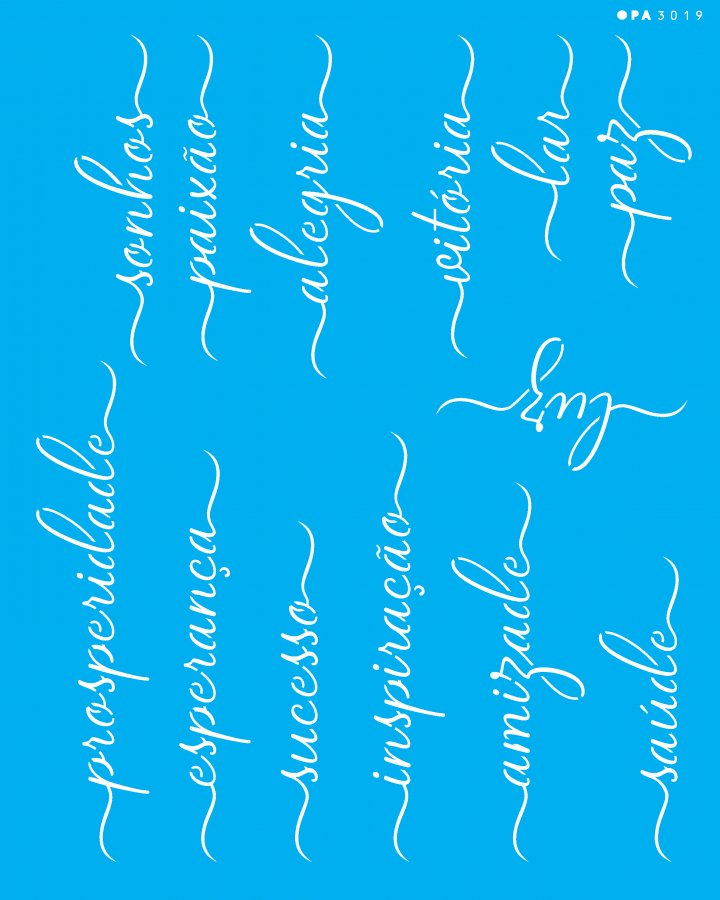 OPA 3019
sonhos
paixão
alegria
vitória
lar
paz
luz
prosperidade
esperança
sucesso
inspiração
amizade
saúde